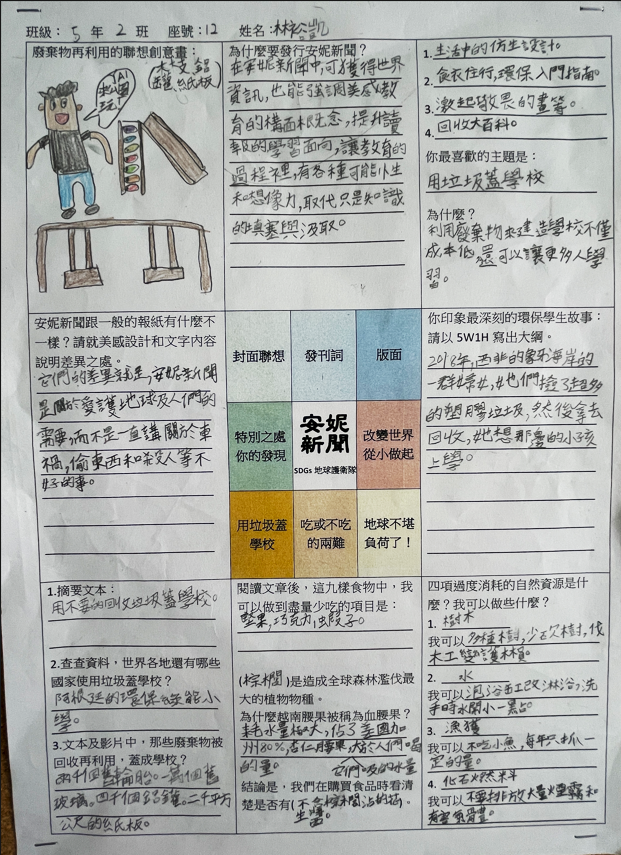 班級：5 年 2 班 座號：12 姓名：林
廢棄物再利用的聯想創意畫：
(木枝、鋁
罐、紙板)
YA!
好
玩!
為什麼要發行安妮新聞？
在安妮新聞中，可獲得世界
資訊，也能強調美感教
育的構面概念，提升讀
報的學習面向，讓教育的
過程裡，有各種可能小生
和想像力，取代只是知識
的填塞與汲取。
1. 生活中的仿生設計。
2. 食衣住行，環保入門指南。
3. 激起敬畏的畫筆。
4. 回收大百科。
你最喜歡的主題是：
用垃圾蓋學校
為什麼？
利用廢棄物來建造學校不僅
成本低，還可以讓更多人學
習。
安妮新聞跟一般的報紙有什麼不
一樣？請就美感設計和文字內容
說明差異之處。
它們的差異就是，安妮新聞
是關於愛護地球及人們的
需要，而不是一直講關於車
禍，偷東西和殺人等不
好的事。
封面聯想 發刊詞 版面
特別之處
你的發現
安妮
新聞
SDGs 地球護衛隊
改變世界
從小做起
用垃圾蓋
學校
吃或不吃
的兩難
地球不堪
負荷了！
你印象最深刻的環保學生故事：
請以 5W1H 寫出大綱。
2018年，西非的象牙海岸的
一群婦女，她們撿了超多
的塑膠垃圾，然後拿去
回收，她想那邊的小孩
上學。
1.摘要文本：
用不要的回收垃圾蓋學校。
2.查查資料，世界各地還有哪些
國家使用垃圾蓋學校？
阿根廷的環保 能小
學。
3.文本及影片中，那些廢棄物被
回收再利用，蓋成學校？
兩千個舊輪胎。一萬個舊
玻璃。四千個鋁罐。二千平方
公尺的紙板。
閱讀文章後，這九樣食物中，我
可以做到盡量少吃的項目是：
堅果，巧克力，
(棕櫚)是造成全球森林濫伐最
大的植物物種。
為什麼越南腰果被稱為血腰果？
耗水量極大，佔了美國加
州80%，杏仁 於人們喝
的量。 它們吸的水量
結論是，我們在購買食品時看清
楚是否有(不含棕櫚
四項過度消耗的自然資源是什
麼？我可以做些什麼？
1. 樹木
我可以多種樹，少砍樹，伐
木工
2. 水
我可以泡浴缸改淋浴，洗
手時水開小一點。
3. 漁獲
我可以不吃小魚，每年只抓一
定的量。
4. 化石燃料
我可以不要排放大量煙霧和
有害氣體。